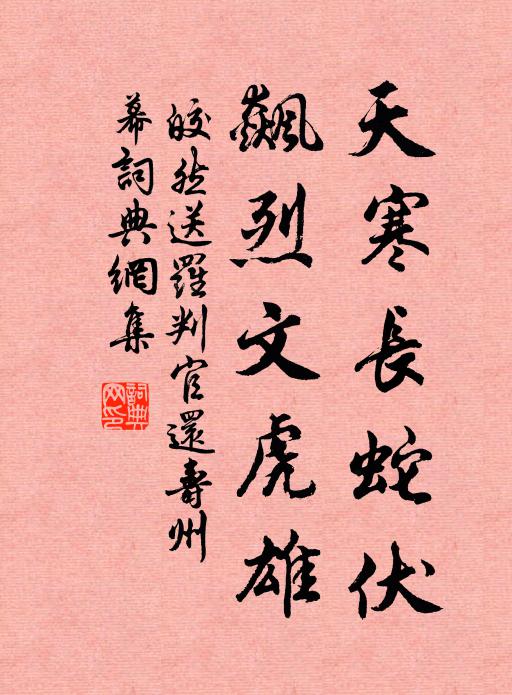 天寒長蛇伏
飆烈文虎雄
皎然送羅判官還壽州
幕詞典網集
詞典網印